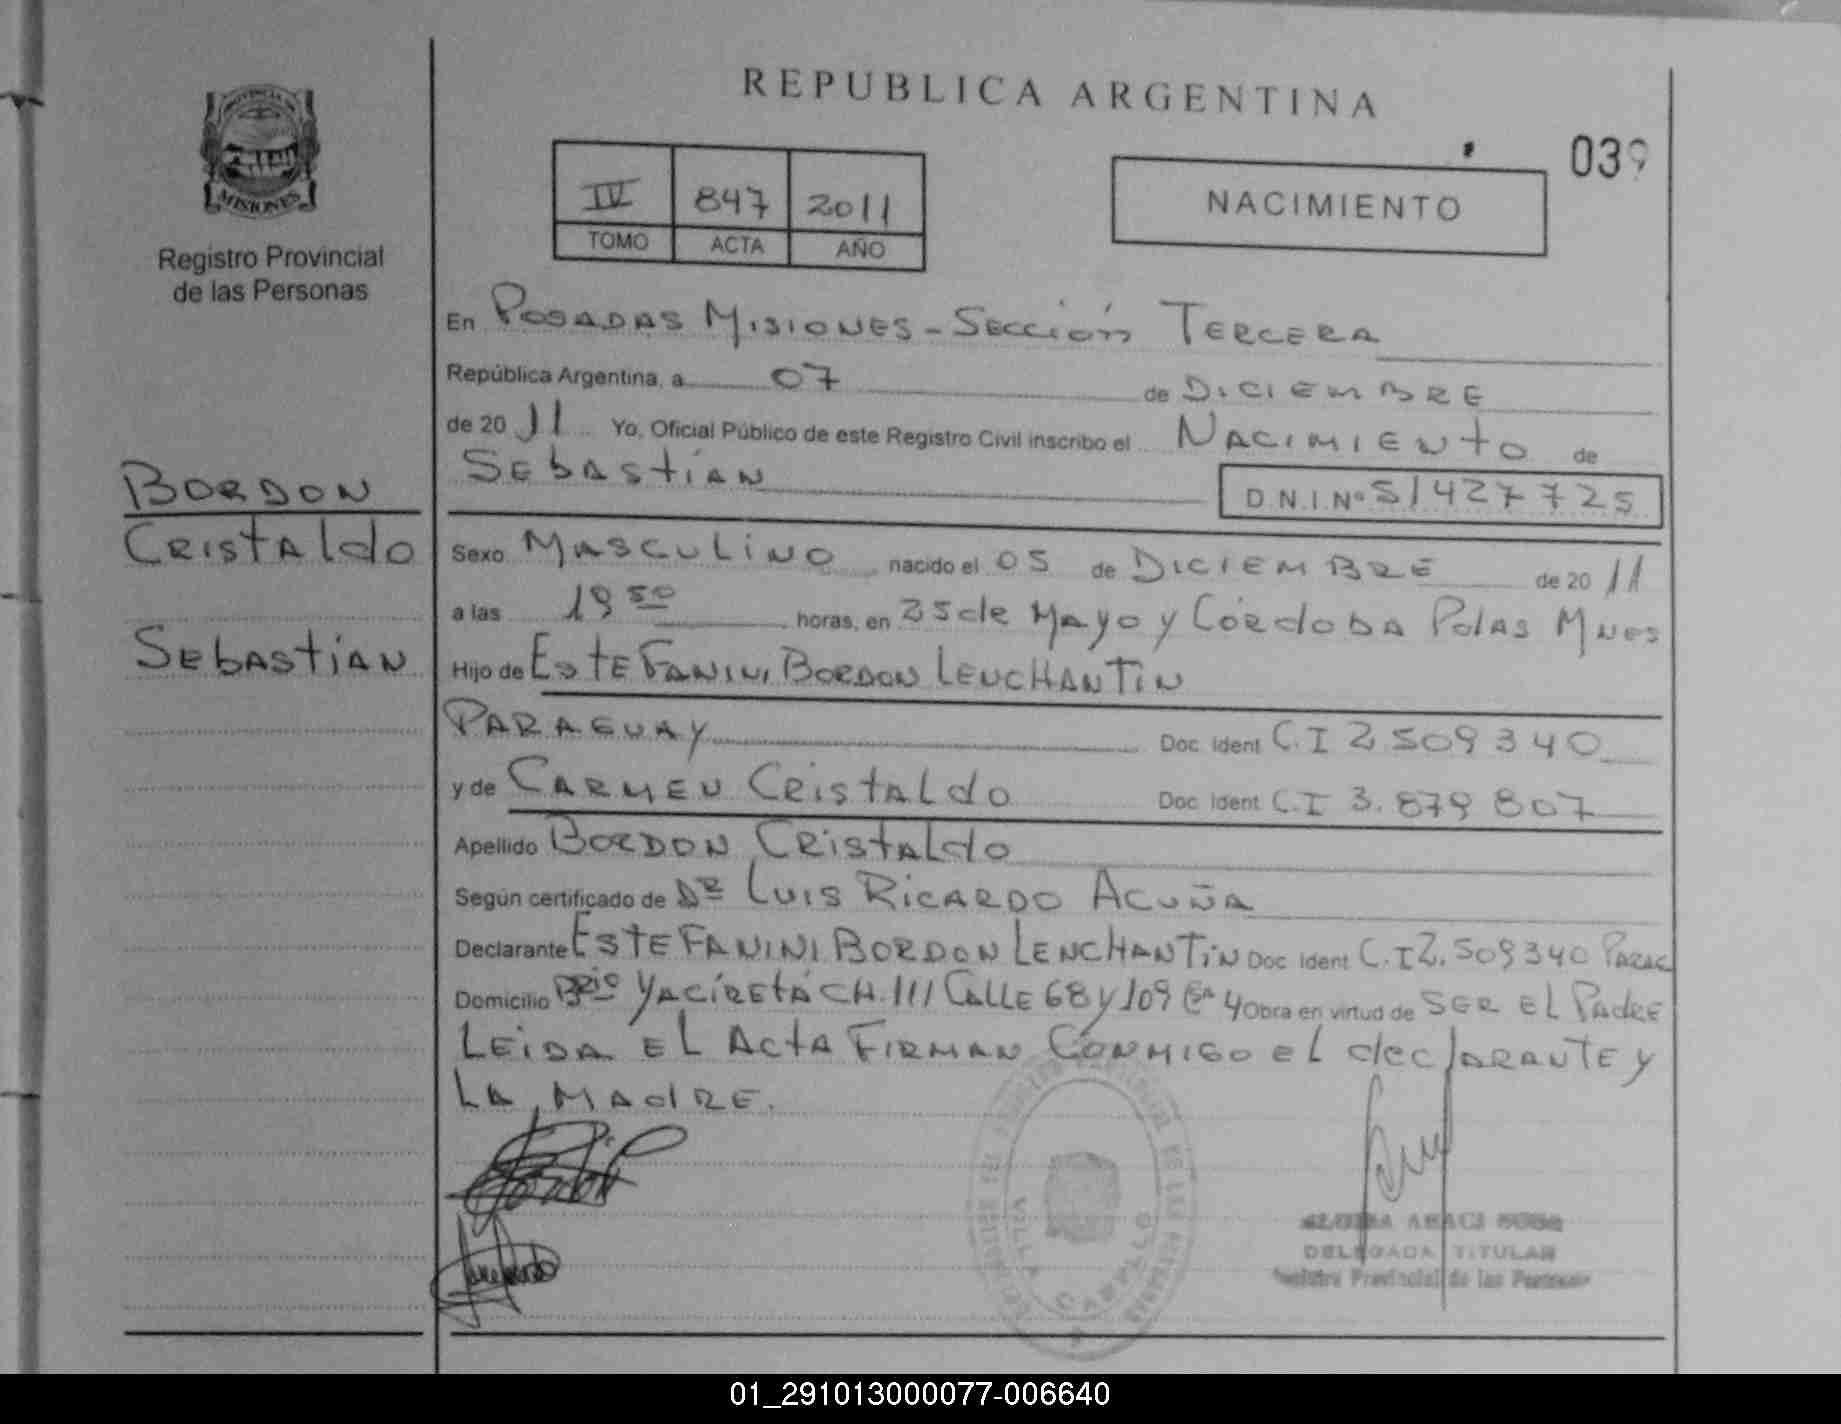 REPUBLICA ARGENTINA
PROVINCIA DE
MISIONES
Registro Provincial
de las Personas
IV 847 2011
TOMO ACTA AÑO
NACIMIENTO
039
En POSADAS MISIONES - SECCIÓN TERCERA
República Argentina, a 07 de DICIEMBRE
de 2011 Yo, Oficial Público de este Registro Civil inscribo el NACIMIENTO de
SEBASTIAN D.N.I.Nº 51427725
BORDON
CRISTALDO
SEBASTIAN
Sexo MASCULINO nacido el 05 de DICIEMBRE de 2011
a las 19 50 horas, en 25 de MAYO y CÓRDOBA Pdas Mnes
Hijo de ESTEFANINI BORDON LENCHANTIN
PARAGUAY Doc Ident C.I 2.509340
y de CARMEN CRISTALDO Doc Ident C.I 3.879807
Apellido BORDON CRISTALDO
Según certificado de DR LUIS RICARDO ACUÑA
Declarante ESTEFANINI BORDON LENCHANTIN Doc Ident C.I 2.509340 PARAG
Domicilio Brio YACIRETÁ CH. 111 CALLE 68 y 109 Ca 4 Obra en virtud de SER EL PADRE
LEIDA EL ACTA FIRMAN CONMIGO EL declARANTE y
LA MADRE.
VILLA CABELLO
DELEGADA TITULAR
Registro Provincial de las Personas
01_291013000077-006640